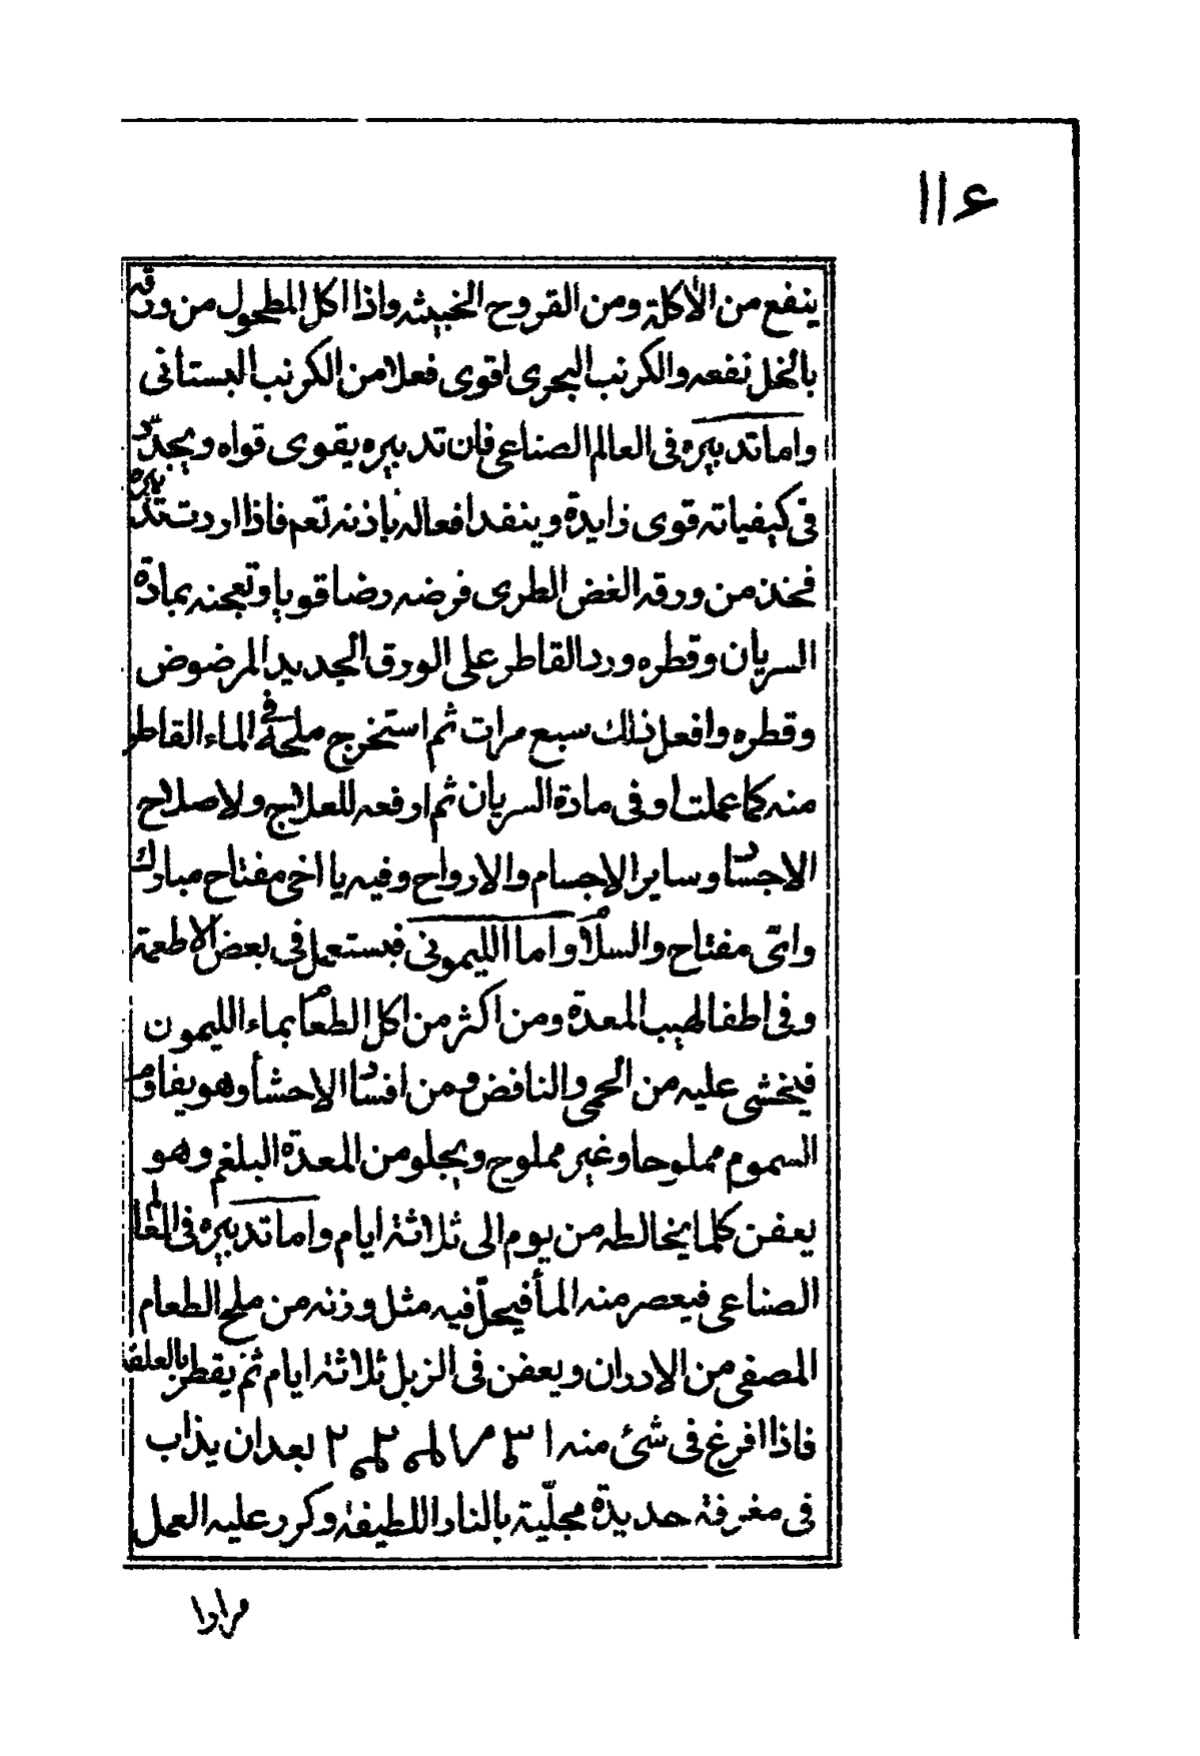 ١١٤
ينفع من الأكلة ومن القروح الخبيثه واذا اكل المطحول من ورقه
بالخل نفعه والكرنب البحرى اقوى فعلا من الكرنب البستانى
واما تدبيره فى العالم الصناعى فإن تدبيره يقوى قواه ويجدّد
فى كيفياته قوى زايدة وينفد افعاله باذنه تعم فاذا اردت تدبيره
فخذ من ورقه الغض الطرى فرضه رضا قويا وتعجنه بمادة
السريان وقطره ورد القاطر على الورق الجديد المرضوض
وقطره وافعل ذلك سبع مرات ثم استخرج ملحه فى الماء القاطر
منه كما عملت اوفى مادة السريان ثم ارفعه للعلاج ولاصلاح
الاجساد وساير الاجسام والارواح وفيه يا اخى مفتاح مبارك
واىّ مفتاح والسلام واما الليمونى فيستعمل فى بعض الاطعمة
وفى اطفا لهيب المعدة ومن اكثر من اكل الطعام بماء الليمون
فيخشى عليه من الحمى والنافض ومن افساد الاحشأ وهو يقاوم
السموم مملوحا وغير مملوح ويجلو من المعدة البلغم وهو
يعفن كلما يخالطه من يوم الى ثلاثة ايام واما تدبيره فى العالم
الصناعى فيعصر منه المأ فيحلّ فيه مثل وزنه من ملح الطعام
المصفى من الادران ويعفن فى الزبل ثلاثة ايام ثم يقطر بالعلقه
فاذا افرغ فى شئ منه بعد ان يذاب
فى مغرفة حديدة مجلّية بالنار اللطيفة وكرر عليه العمل
مرارا